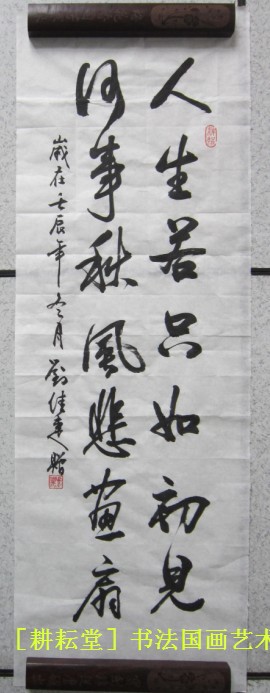 人生若只如初見
何事秋風悲畫扇
歲在壬辰年冬月劉佳連贈
[耕耘堂]书法国画艺术